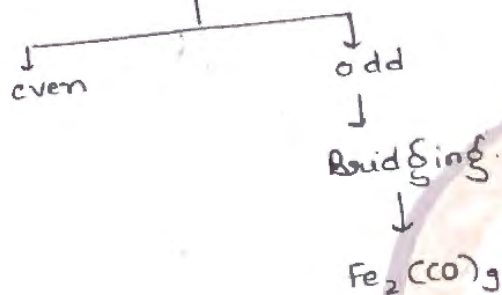 even
odd
Bridging.
Fe₂(CO)₉